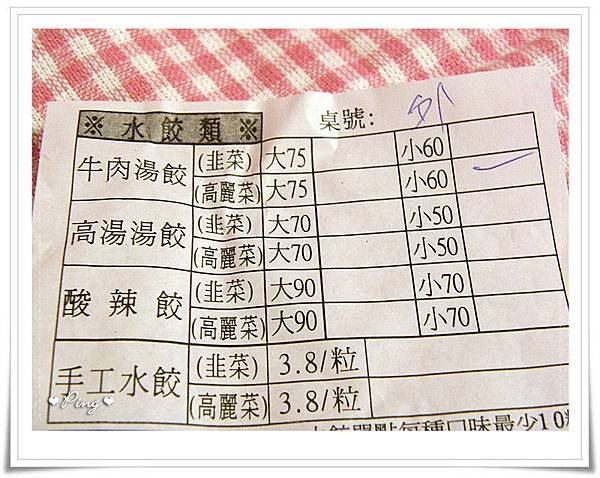 ※ 水餃類 ※ 桌號: 外
牛肉湯餃 (韭菜) 大75 小60
(高麗菜) 大75 小60
高湯湯餃 (韭菜) 大70 小50
(高麗菜) 大70 小50
酸辣餃 (韭菜) 大90 小70
(高麗菜) 大90 小70
手工水餃 (韭菜) 3.8/粒
(高麗菜) 3.8/粒
水餃單點每種口味最少10粒
Ping